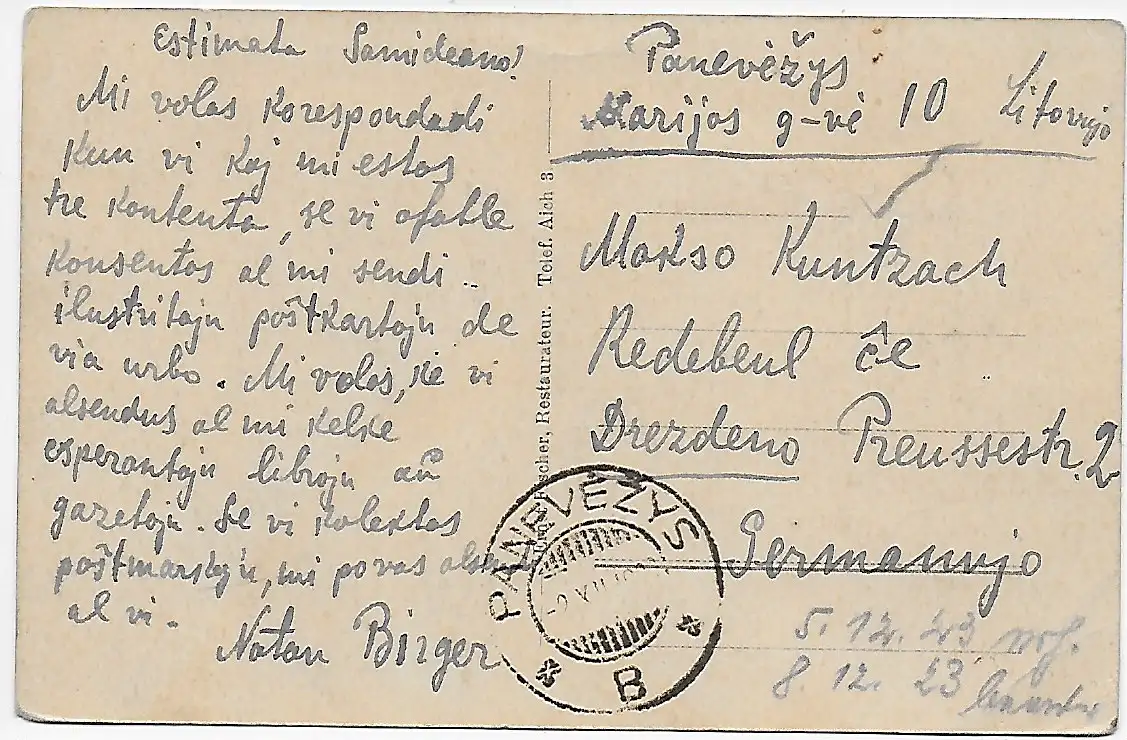 Estimata Samideano!
Mi volas korespondadi
kun vi kaj mi estos
tre kontenta, se vi afable
konsentos al mi sendi
ilustritajn poŝtkartojn de
via urbo. Mi volas, ke vi
alsendus al mi kelke
esperantajn librojn aŭ
gazetojn. Se vi kolektas
poŝtmarkojn, mi povas
al vi.
Natan Birger
Fischer, Restaurateur. Telef. Aich 3
Panevėžys
Marijos g-vė 10 Litovujo
Makso Kuntzach
Redebeul ĉe
Drezdeno Preussestr. 2
Germanujo
PANEVĖŽYS
B
5. 12. 23
8. 12. 23